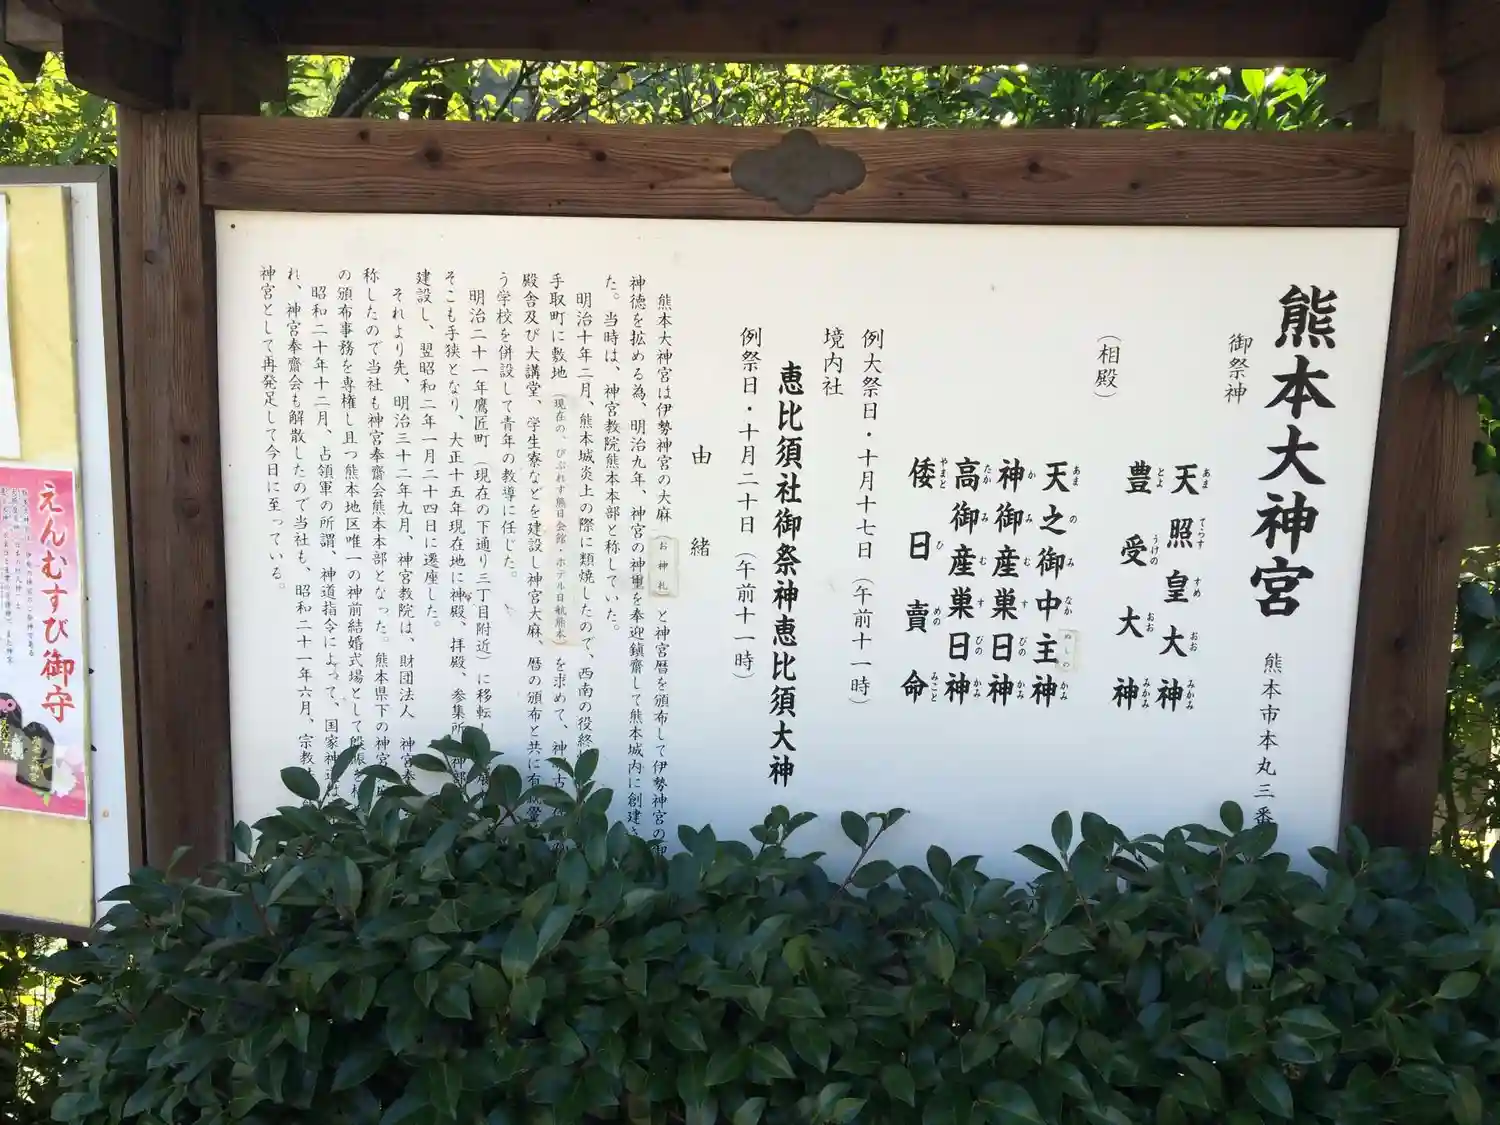 熊本大神宮
熊本市本丸三番
御祭神
天照皇大神
あま てらす すめ おお みかみ
豊受大神
とよ うけの おお みかみ
（相殿）
天之御中主神
あま の み なか ぬしの かみ
神御産巣日神
か み む す びの かみ
高御産巣日神
たか み む す びの かみ
倭日賣命
やまと ひ めの みこと
例大祭日・十月十七日（午前十一時）
境内社
恵比須社御祭神恵比須大神
例祭日・十月二十日（午前十一時）
由緒
熊本大神宮は伊勢神宮の大麻（お神札）と神宮暦を頒布して伊勢神宮の御
神徳を拡める為、明治九年、神宮の神霊を奉迎鎮齋して熊本城内に創建さ
た。当時は、神宮教院熊本本部と称していた。
明治十年二月、熊本城炎上の際に類焼したので、西南の役終
手取町に敷地（現在の、びぷれす熊日会館・ホテル日航熊本）を求めて、神
殿舎及び大講堂、学生寮などを建設し神宮大麻、暦の頒布と共に有
う学校を併設して青年の教導に任じた。
明治二十一年鷹匠町（現在の下通り三丁目附近）に移転し
そこも手狭となり、大正十五年現在地に神殿、拝殿、参集所
建設し、翌昭和二年一月二十四日に遷座した。
それより先、明治三十二年九月、神宮教院は、財団法人 神宮奉
称したので当社も神宮奉齋会熊本本部となった。熊本県下の神宮
の頒布事務を専権し且つ熊本地区唯一の神前結婚式場として殷賑を
昭和二十年十二月、占領軍の所謂、神道指令によって、国家神道は
れ、神宮奉齋会も解散したので当社も、昭和二十一年六月、宗教
神宮として再発足して今日に至っている。
えんむすび御守